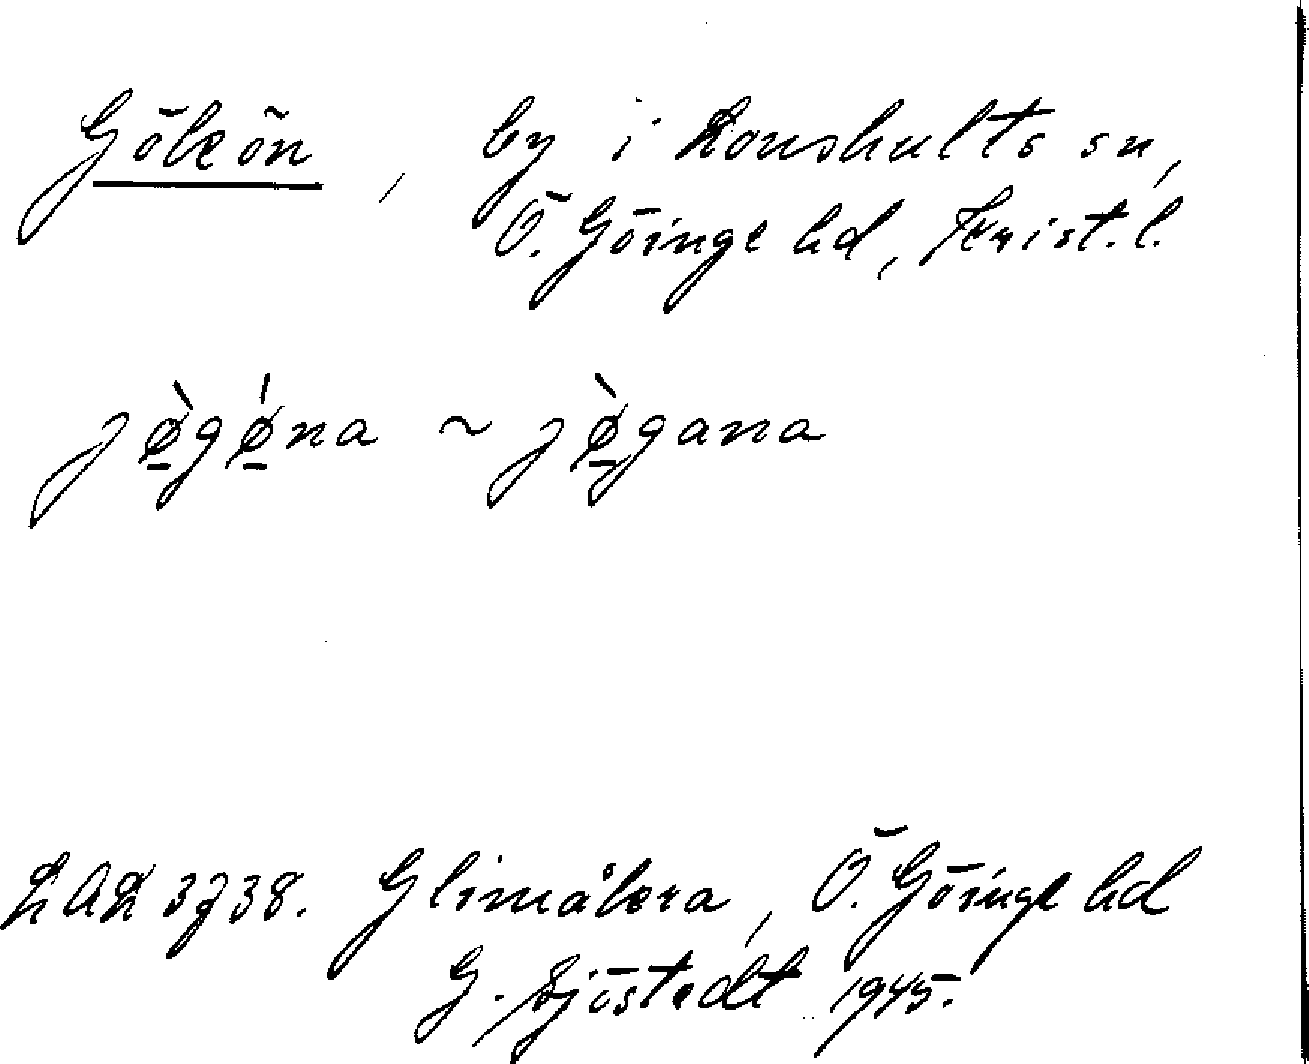 Gökön, by i Loushults sn,
Ö. Göinge hd, Krist. l.
jø̱̀gǿ̱na ~ jø̱̀gana
LAL 3738. Glimåkra, Ö. Göinge hd
G. Sjöstedt 1945.